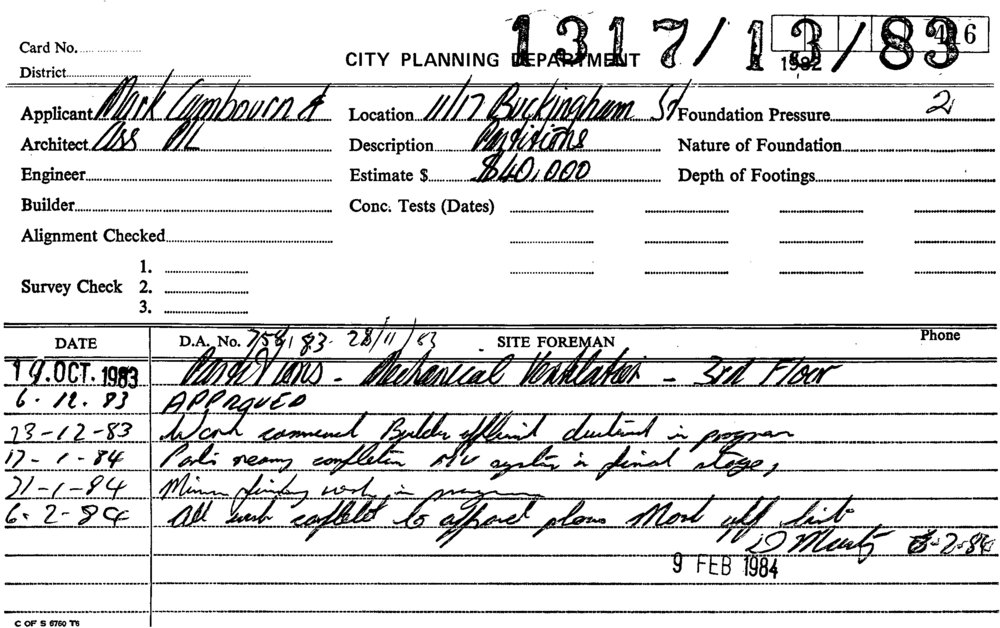 1317/13/83
46
1982
Card No.
CITY PLANNING DEPARTMENT
District
Applicant Mark Cambourn & Location 11/17 Buckingham St Foundation Pressure 2
Architect Ass PL Description Partitions Nature of Foundation
Engineer Estimate $ $40,000 Depth of Footings
Builder Conc. Tests (Dates)
Alignment Checked
1.
Survey Check 2.
3.
DATE D.A. No. 28/11/83 SITE FOREMAN Phone
19. OCT. 1983 Partitions - Mechanical Ventilation - 3rd Floor
6. 12. 83 APPROVED
23-12-83 Work Builder in program
17-1-84 completion M/V system in final stage,
21-1-84 Minor work in
6. 2-84 All work to plans
6-2-84
9 FEB 1984
C OF S 6760 T6